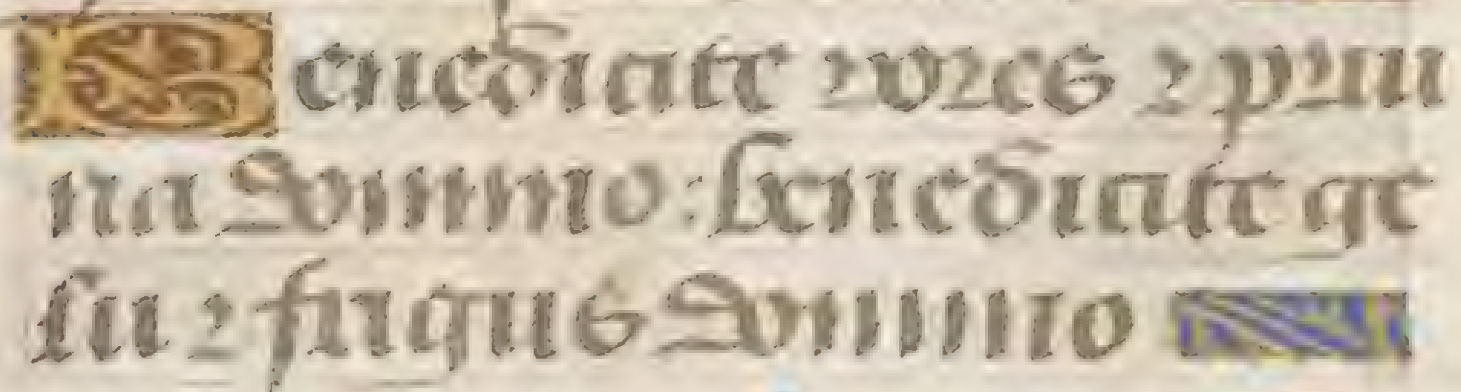 Benedicite rores et prui
na domino: benedicite ge
lu et frigus domino